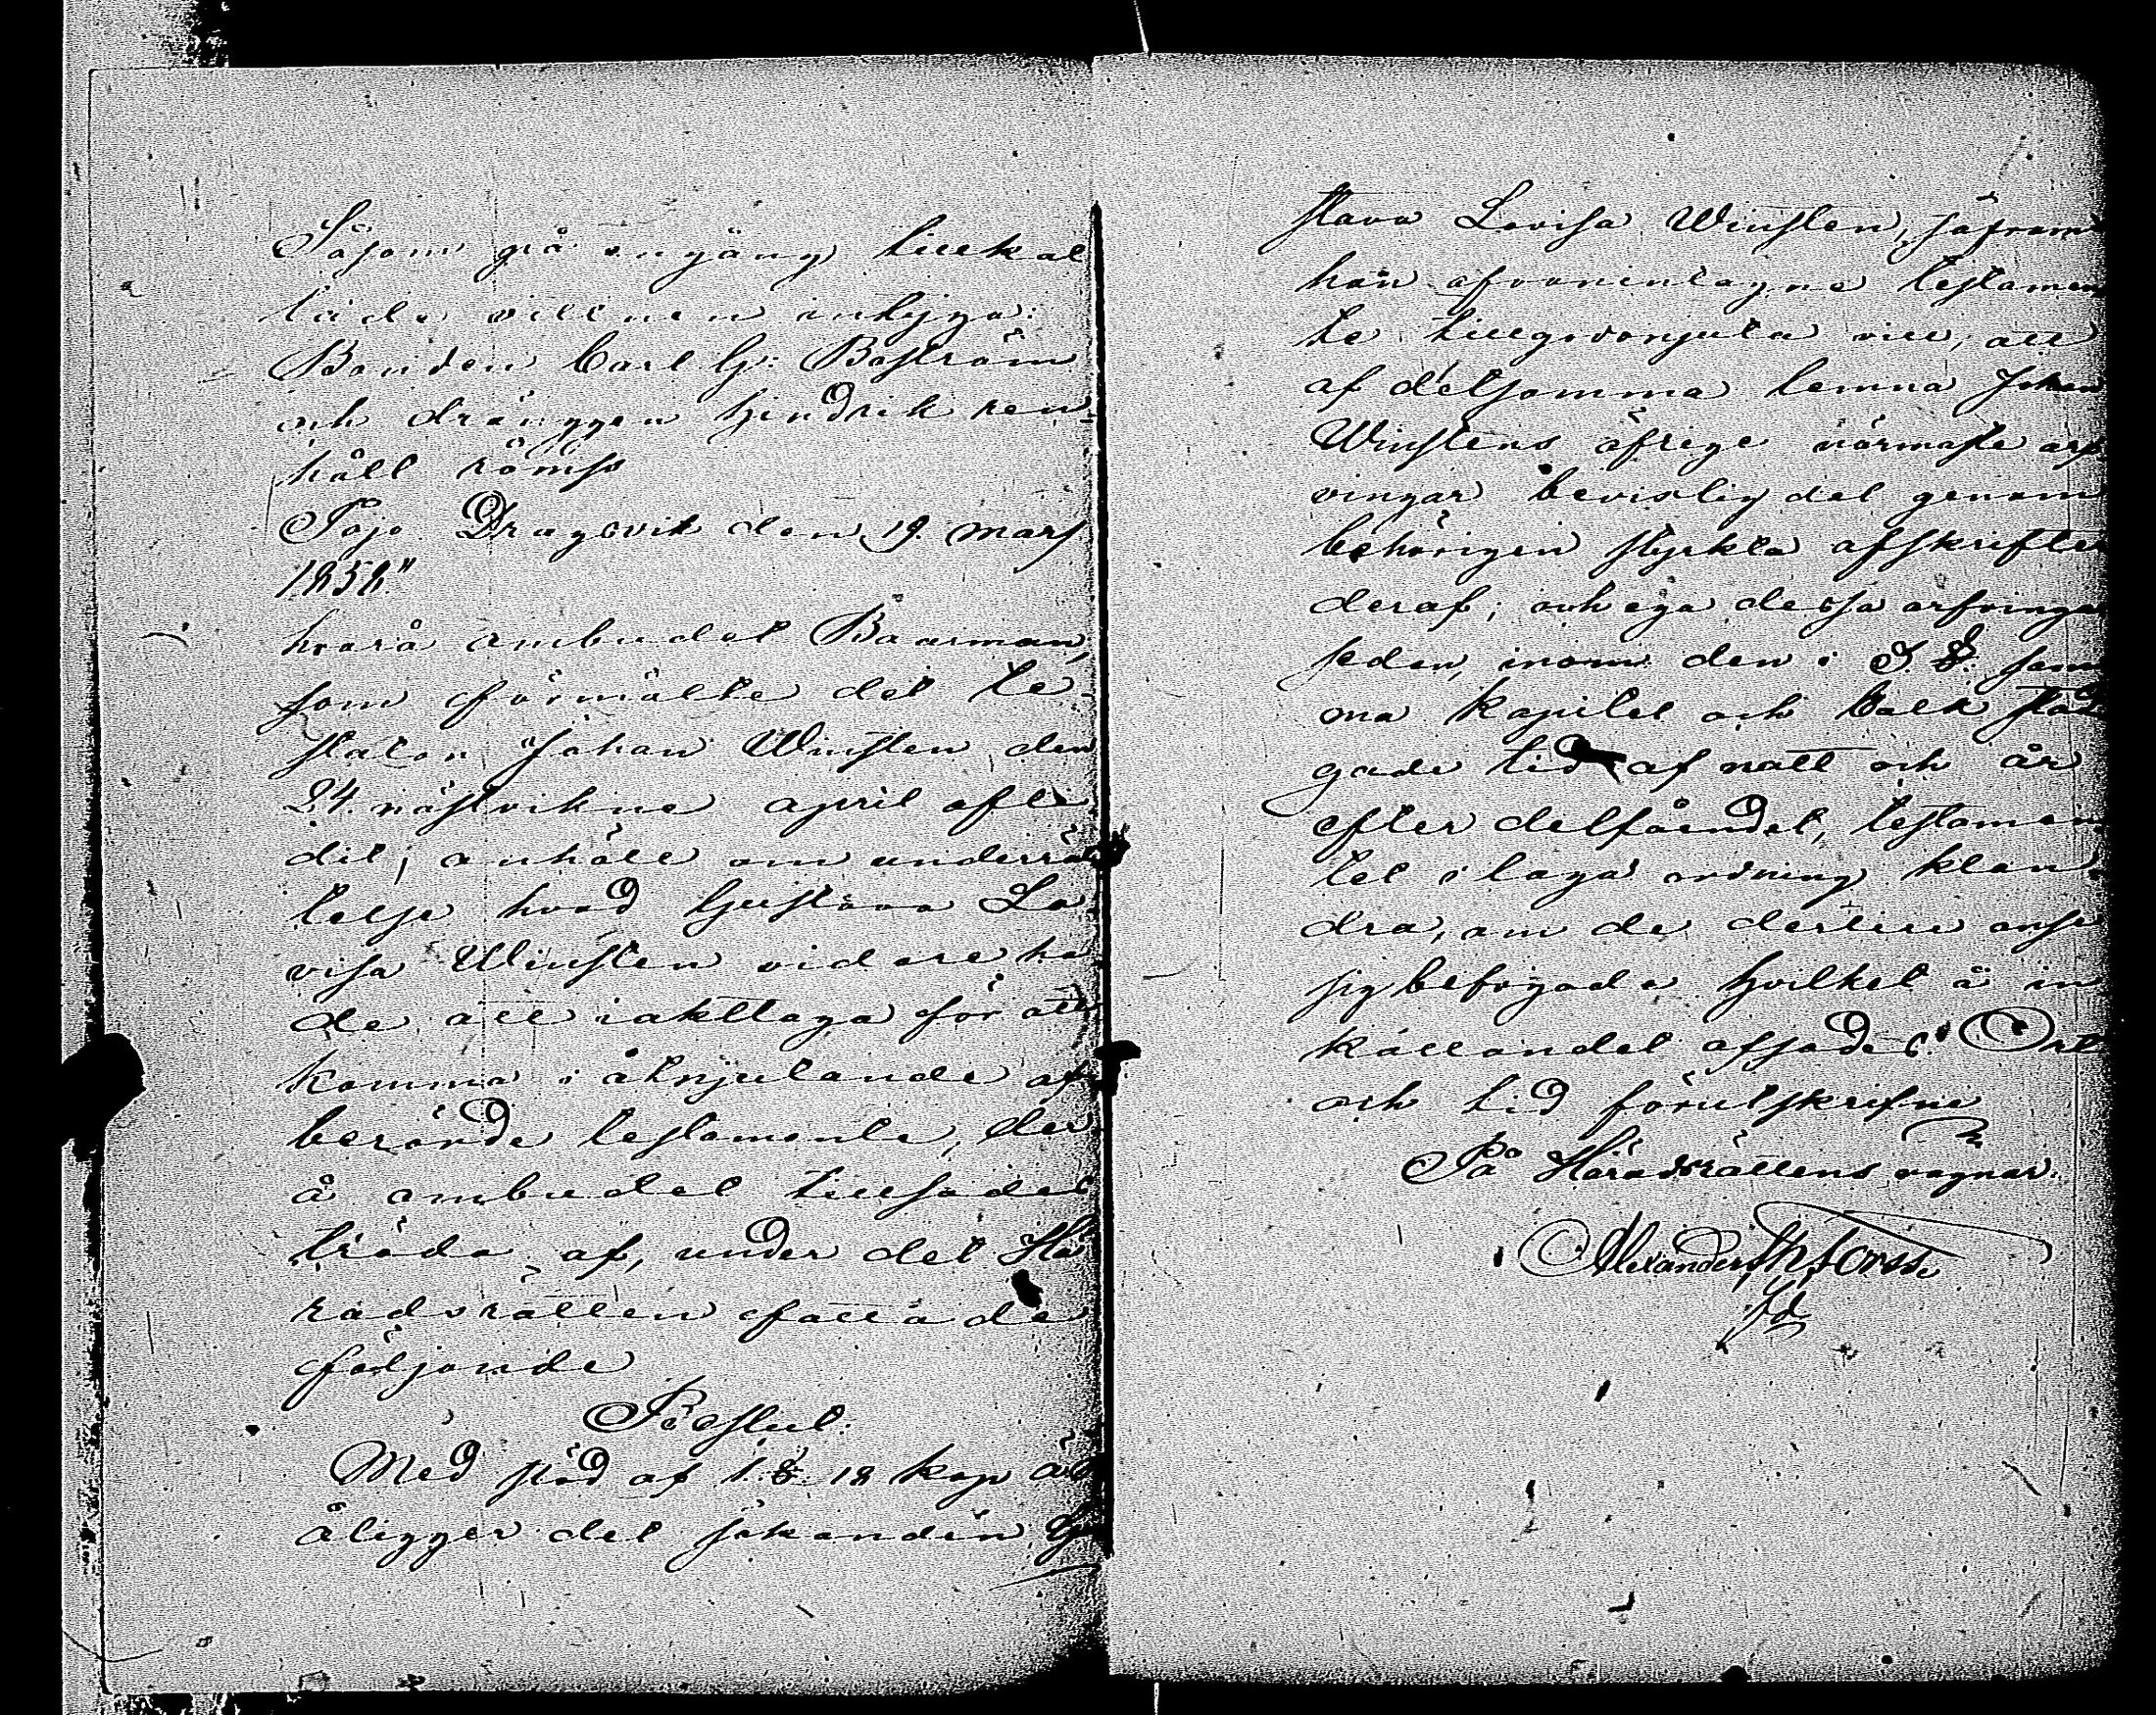 Såsom på engång tillkal
lade vittnen intyga:
Bonden Carl G: Boström
och drängen Hindrik ren
håll römss
Pojo Dragsvik den 19 mars
1858"
hvarå ombudet Baarman,
som förmälte det te
stator Johan Winsten den
24 nästvikne april afli
dit, anhöll om underrät
telse hvad Gustava Lo
visa Winsten vidare ha
de att iakttaga för att
komma i åtnjutande af
berörde testamente, der
å ombudet tillsades
träda af, under det Hä
radsrätten fattade
följande
Beslut.
Med stöd af 1 § 18 kap ÄB
åligger det sökanden Gu
stava Lovisa Winsten, såframt
hon ofvanintagne testamen
te tillgodonjuta vill, att
af detsamma lemna Johan
Winstens öfrige närmaste arf
vingar bevislig del genom
behörigen styrkta afskrifter
deraf; och ega dessa arfvingar
sedan, inom den i § sam
ma kapitel och balk stad
gade tid af natt och år
efter delfåendet, testamen
tet i laga ordning klan
dra, om de dertill anse
sig befogade Hvilket å in
kallandet afsades. Ort
och tid förutskrefne
På Häradsrättens vägnar:
Alexander Th Forss